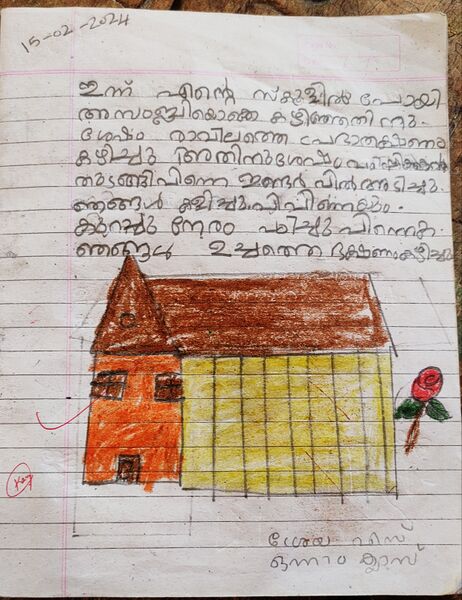 15-02-2024
ഇന്ന് എന്റെ സ്കൂളിൽ പോയി
അസംബ്ലിയൊക്കെ കഴിഞ്ഞതിനു
ശേഷം രാവിലത്തെ പ്രഭാതഭക്ഷണം
കഴിച്ചു അതിനുശേഷം പഠിപ്പിക്കാൻ
തുടങ്ങി പിന്നെ ഇന്റർ വിൽ അടിച്ചു.
ഞങ്ങൾ കളിച്ചു. പിന്നെയും
കുറച്ചു നേരം പഠിച്ചു. പിന്നെ
ഞങ്ങൾ ഉച്ചത്തെ ഭക്ഷണം കഴിച്ചു
ഒന്നാം ക്ലാസ്